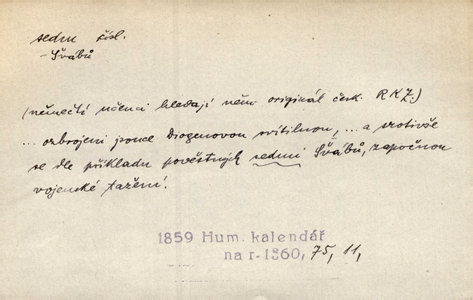 sedm čísl.
- Švábů
(němečtí učenci hledají něm. originál česk. RKZ.)
... ozbrojeni pouze Diogenovou svítilnou, ... a
se dle příkladu pověstných sedmi Švábů, započnou
vojenské tažení.
1859 Hum. kalendář
na r. 1860, 75, 11,